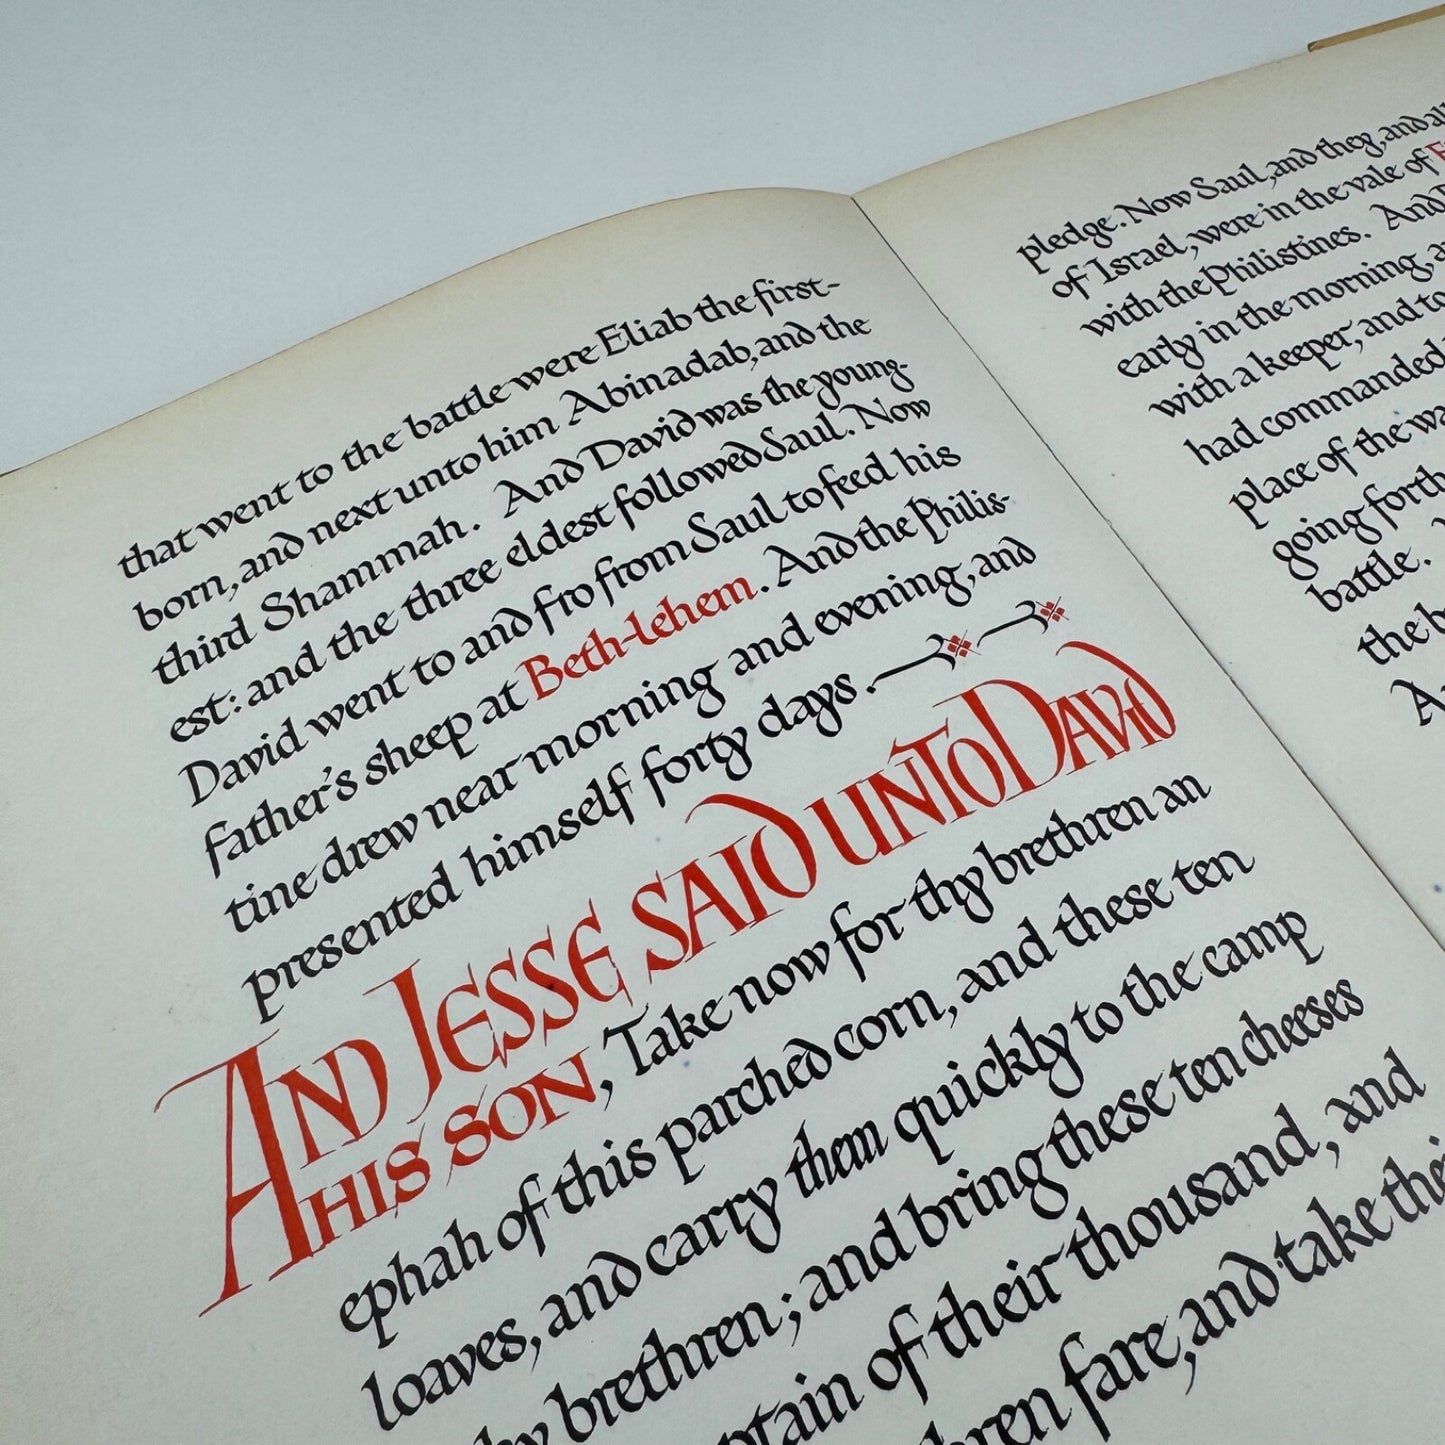 that went to the battle were Eliab the first-
born, and next unto him Abinadab, and the
third Shammah. And David was the young-
est: and the three eldest followed Saul. Now
David went to and fro from Saul to feed his
father's sheep at Beth-lehem. And the Philis-
tine drew near morning and evening, and
presented himself forty days.
AND JESSE SAID UNTO DAVID
HIS SON, Take now for thy brethren an
ephah of this parched corn, and these ten
loaves, and carry them quickly to the camp
brethren; and bring these ten cheeses
of their thousand, and
fare, and take
pledge. Now Saul, and they, and all
of Israel, were in the vale of
with the Philistines. And
early in the morning,
with a keeper, and
had commanded
place of the
going forth
battle.
the